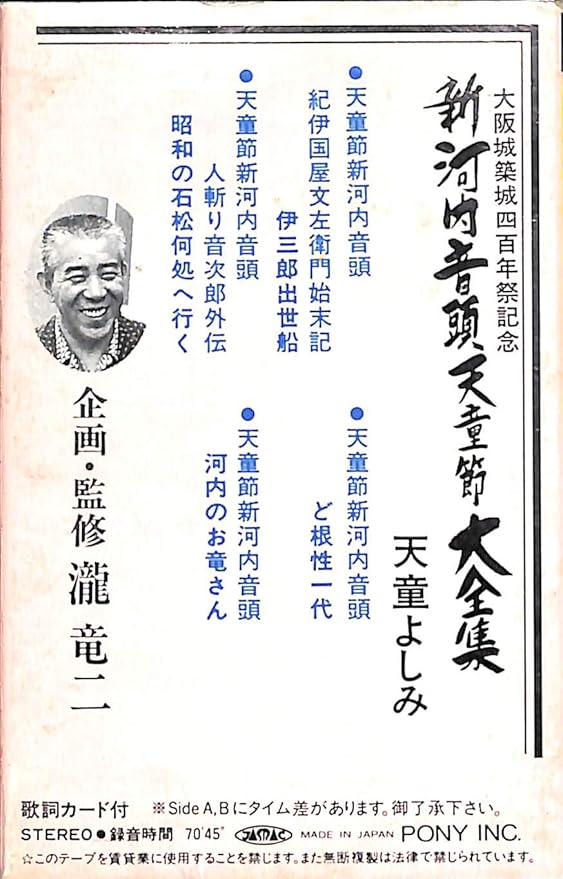 大阪城築城四百年祭記念
新河内音頭、天童節大全集
天童よしみ
●天童節新河内音頭
紀伊国屋文左衛門始末記
伊三郎出世船
●天童節新河内音頭
ど根性一代
●天童節新河内音頭
人斬り音次郎外伝
昭和の石松何処へ行く
●天童節新河内音頭
河内のお竜さん
企画・監修 瀧 竜二
歌詞カード付 ※Side A,Bにタイム差があります。御了承下さい。
STEREO●録音時間 70'45" JASRAC MADE IN JAPAN PONY INC.
☆このテープを賃貸業に使用することを禁じます。また無断複製は法律で禁じられています。